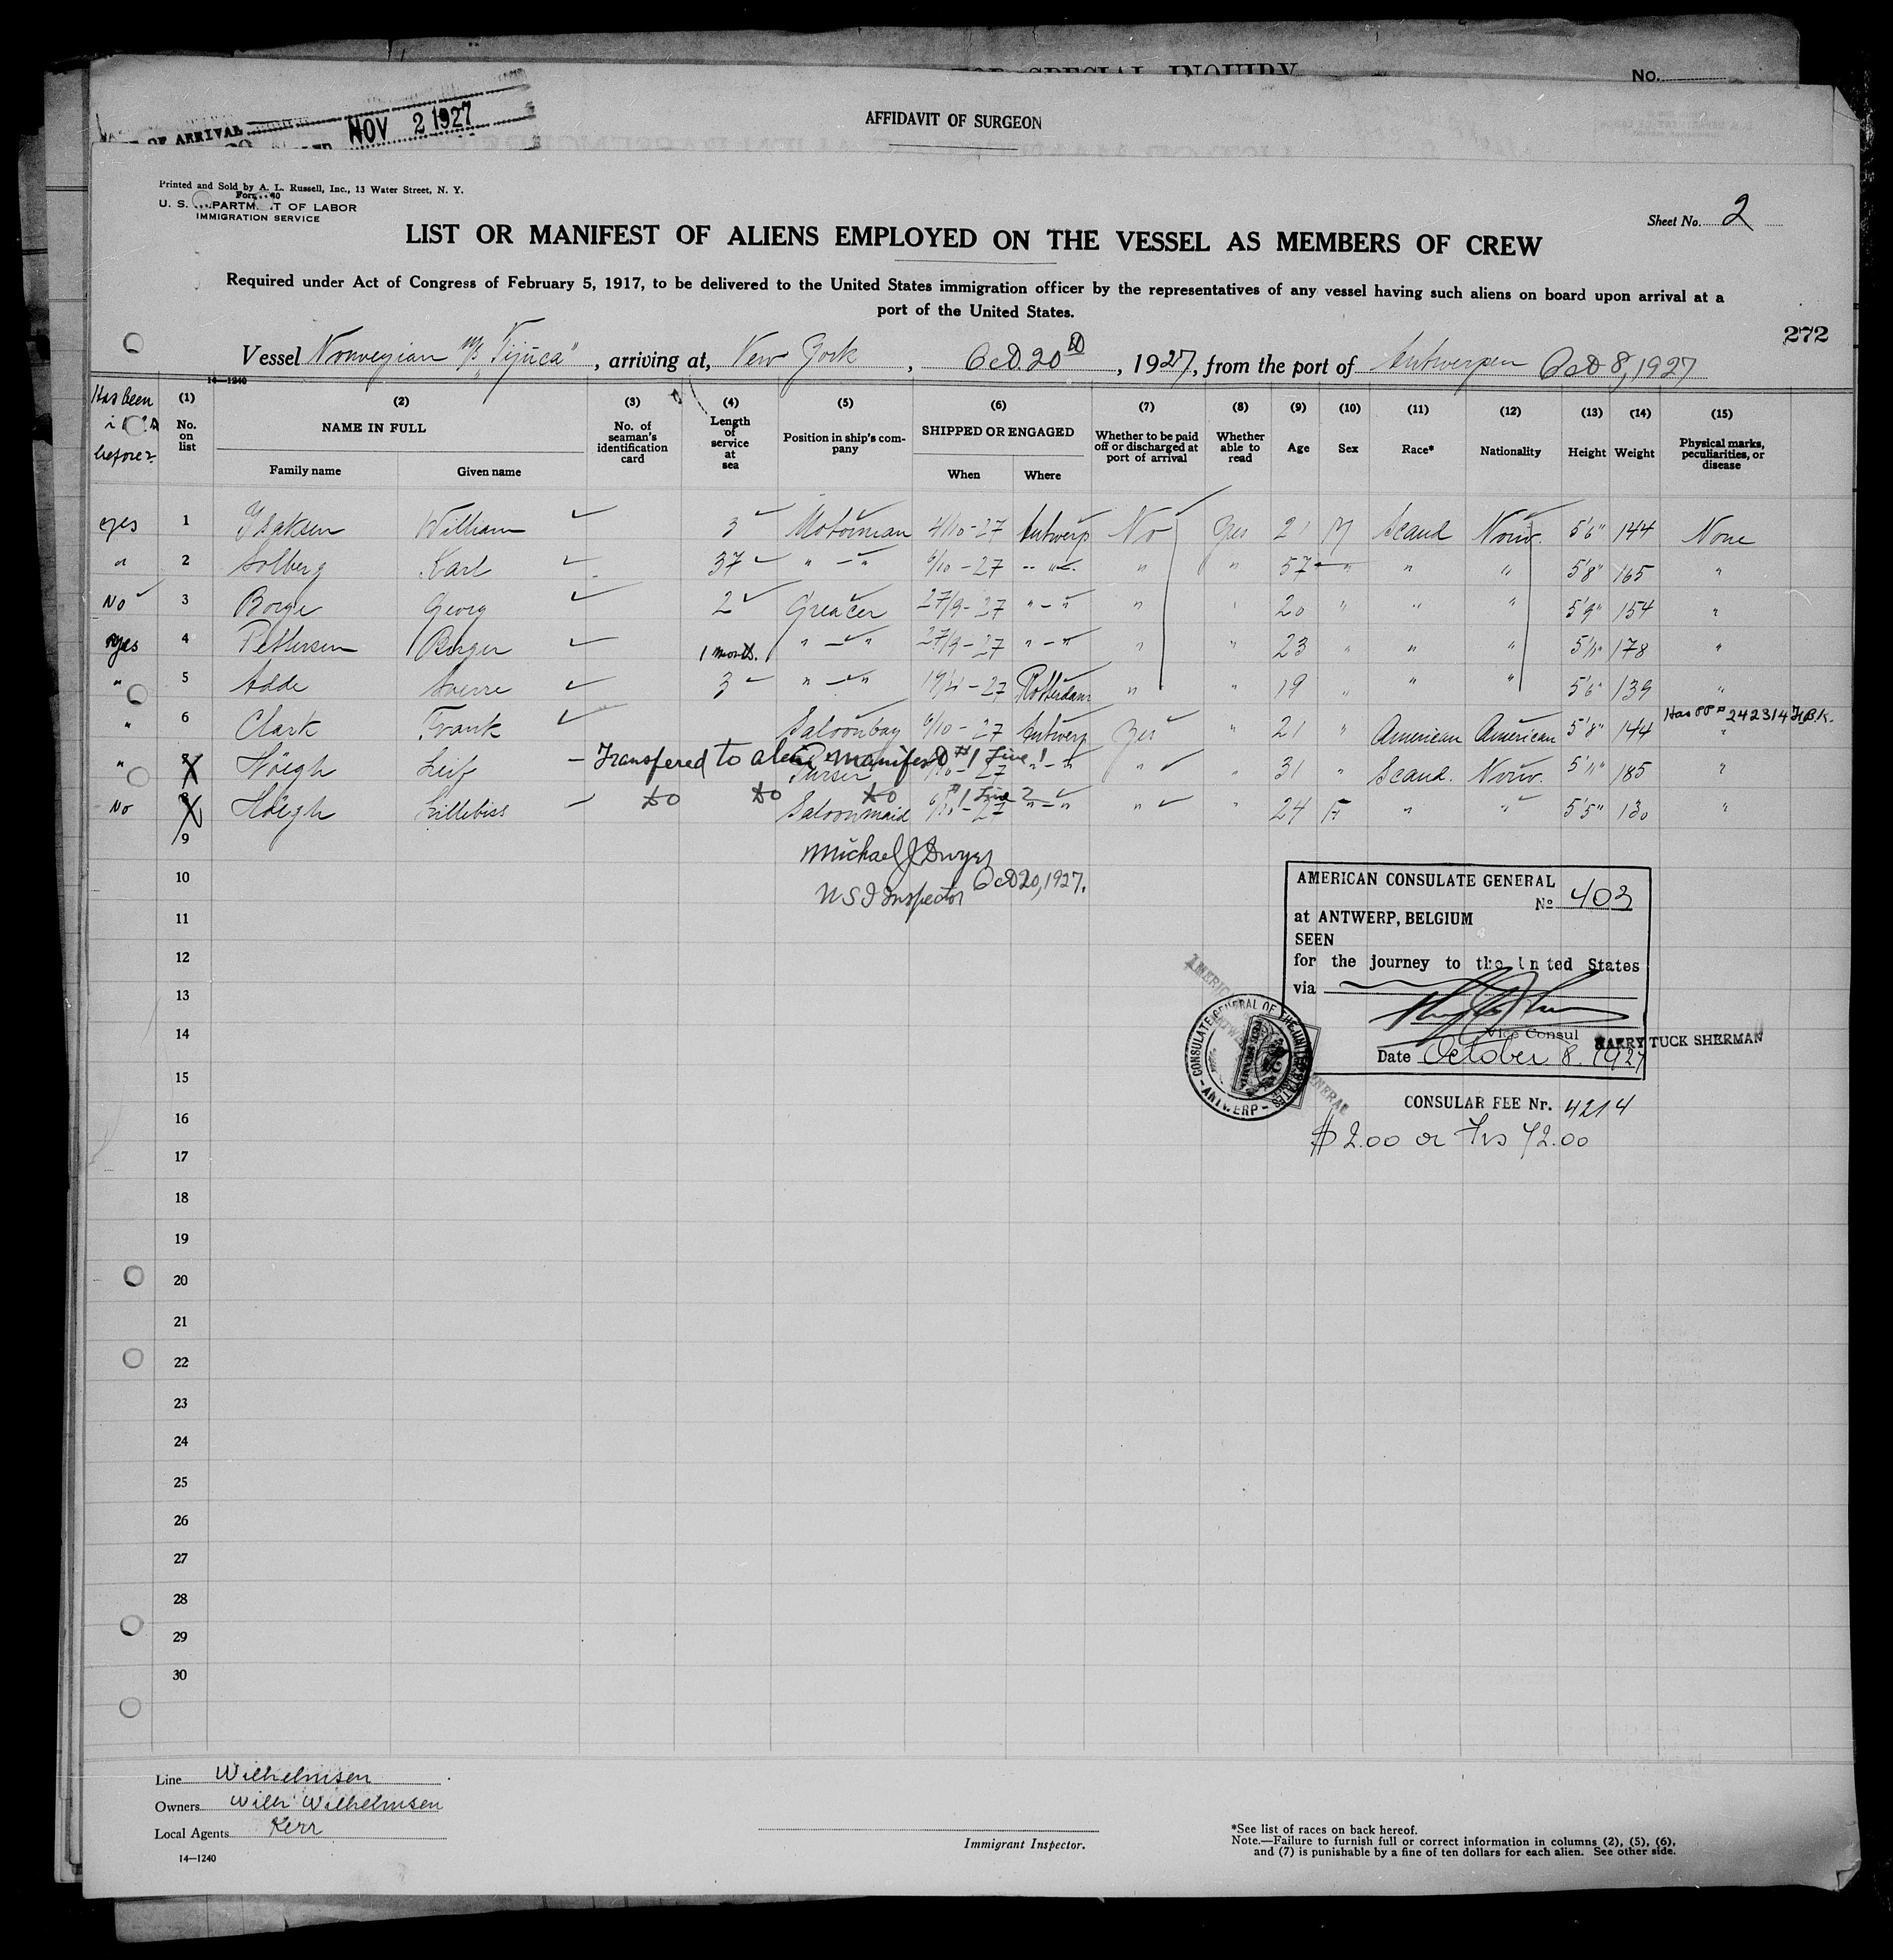 FOR SPECIAL INQUIRY
No.
OF ARRIVAL NOV 2 1927
AFFIDAVIT OF SURGEON
Printed and Sold by A. L. Russell, Inc., 13 Water Street, N. Y.
U. S. DEPARTMENT OF LABOR
IMMIGRATION SERVICE
Sheet No. 2
LIST OR MANIFEST OF ALIENS EMPLOYED ON THE VESSEL AS MEMBERS OF CREW
Required under Act of Congress of February 5, 1917, to be delivered to the United States immigration officer by the representatives of any vessel having such aliens on board upon arrival at a
port of the United States.
272
Vessel Norwegian M/S "Tijuca", arriving at, New York, Oct. 20th, 1927, from the port of Antwerpen Oct 8, 1927
14—1240
Has been in USA before?
(1) No. on list
(2) NAME IN FULL Family name Given name
(3) No. of seaman's identification card
(4) Length of service at sea
(5) Position in ship's company
(6) SHIPPED OR ENGAGED When Where
(7) Whether to be paid off or discharged at port of arrival
(8) Whether able to read
(9) Age
(10) Sex
(11) Race*
(12) Nationality
(13) Height
(14) Weight
(15) Physical marks, peculiarities, or disease
yes 1 Isaksen William 3 Motorman 4/10-27 Antwerp No Yes 21 M Scand Norw. 5'6" 144 None
" 2 Solberg Karl 37 " - " 6/10-27 " - " " " 57 " " " 5'8" 165 "
No 3 Borge Georg 2 Greacer 27/9-27 " - " " " 20 " " " 5'9" 154 "
yes 4 Pettersen Birger 1 month. " - " 27/9-27 " - " " " 23 " " " 5'11" 178 "
" 5 Adde Sverre 3 " - " 19/4-27 Rotterdam " " 19 " " " 5'6" 139 "
" 6 Clark Frank Saloonboy 6/10-27 Antwerp Yes " 21 " American American 5'8" 144 "
Has PP # 242314 H.B.K.
" 7 Höegh Leif Purser /10-27 " - " " " 31 " Scand. Norw. 5'11" 185 "
- Transfered to alien manifest #1 Line 1
No 8 Höegh Lillebiss Saloonmaid 6/10-27 " - " " " 24 F " " 5'5" 130 "
- do do do #1 Line 2
9
Michael J Dwyer
10
USI Inspector Oct 20, 1927.
11
12
13
14
15
16
17
18
19
20
21
22
23
24
25
26
27
28
29
30
AMERICAN CONSULATE GENERAL
No 403
at ANTWERP, BELGIUM
SEEN
for the journey to the United States
via
Vice Consul
HARRY TUCK SHERMAN
Date October 8. 1927
CONSULATE GENERAL OF THE UNITED STATES
- ANTWERP -
CONSULAR FEE Nr. 4214
$ 2.00 or Frs 72.00
Line Wilhelmsen
Owners Wilh Wilhelmsen
Local Agents Kerr
14—1240
Immigrant Inspector.
*See list of races on back hereof.
Note.—Failure to furnish full or correct information in columns (2), (5), (6),
and (7) is punishable by a fine of ten dollars for each alien. See other side.